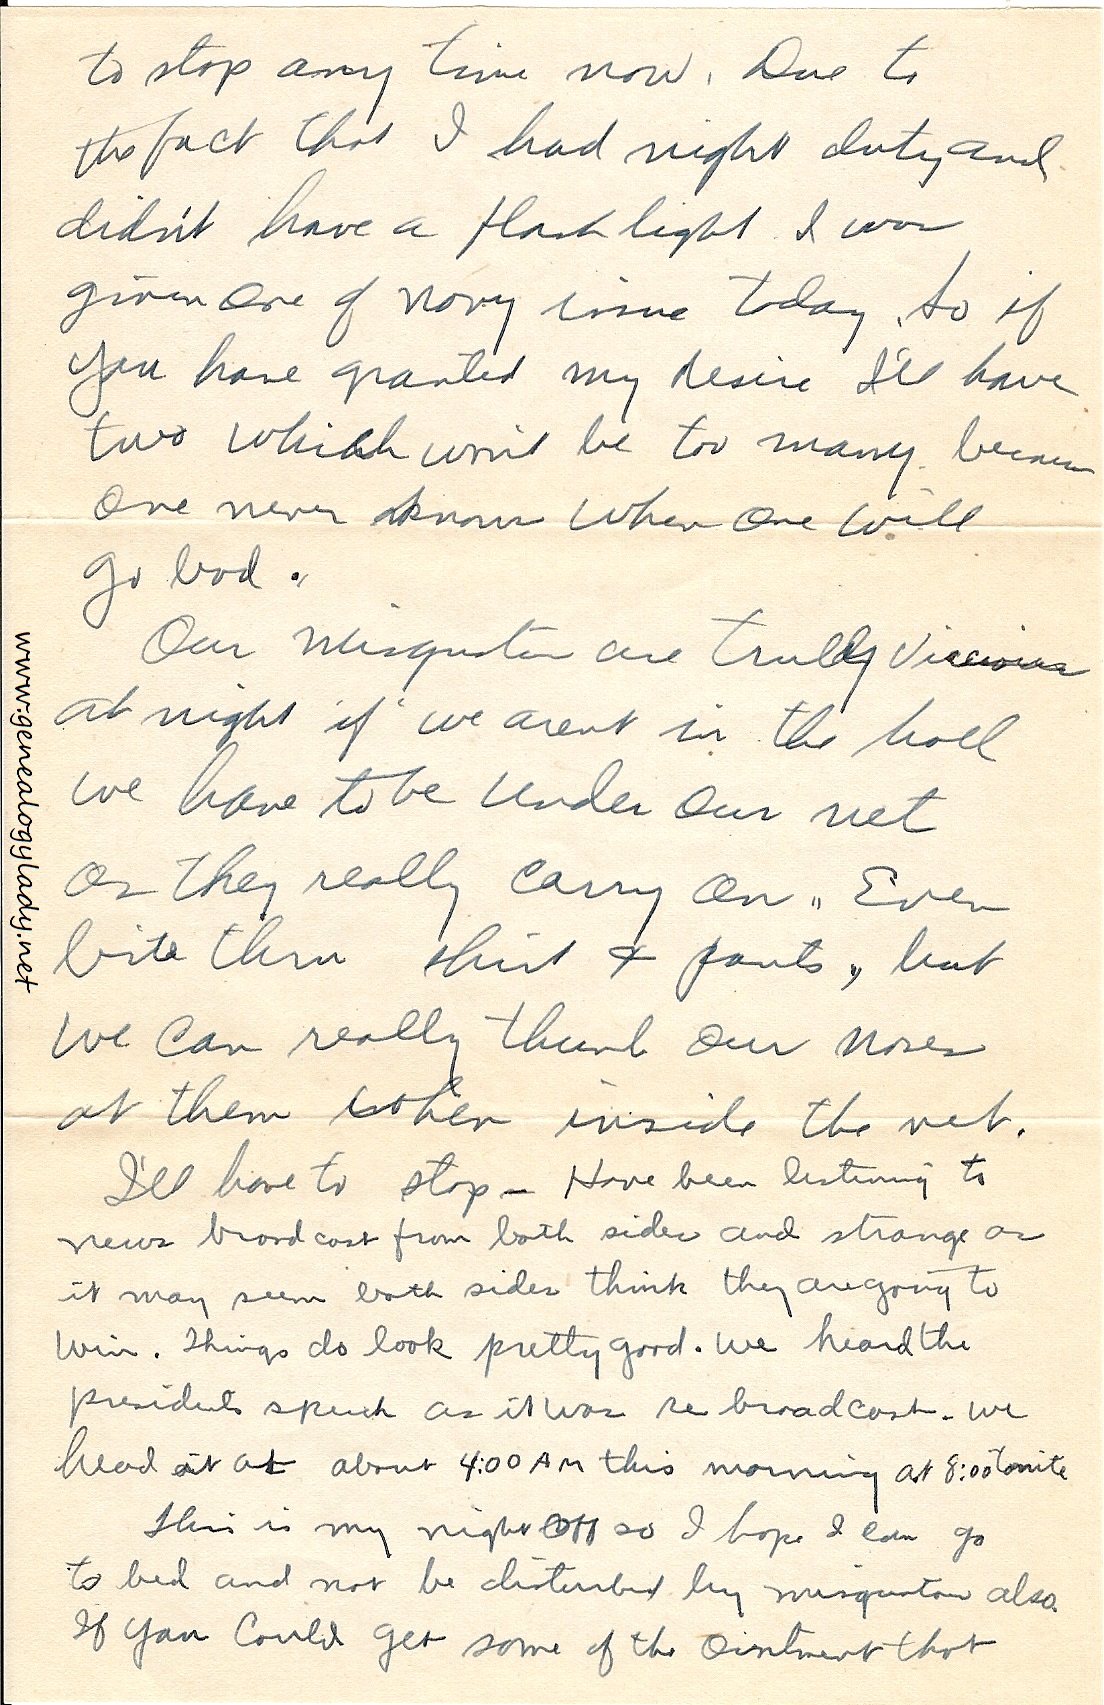 to stop any time now. Due to
the fact that I had night duty and
didn't have a flash light I was
given one of navy issue today. So if
you have granted my desire I'll have
two which won't be too many because
one never knows when one will
go bad.
Our misquitos are trully
at night if we arent in the hall
we have to be under our net
as they really carry on. Even
bite thru shirt & pants, but
we can really thumb our noses
at them when inside the net.
I'll have to stop - Have been listening to
news broadcast from both sides and strange as
it may seem both sides think they are going to
win. Things do look pretty good. We heard the
presidents speech as it was re broadcast. We
head it at about 4:00 AM this morning at 8:00 tonite
This is my night off so I hope I can go
to bed and not be disturbed by misquitos also.
If you could get some of the ointment that
www.genealogylady.net